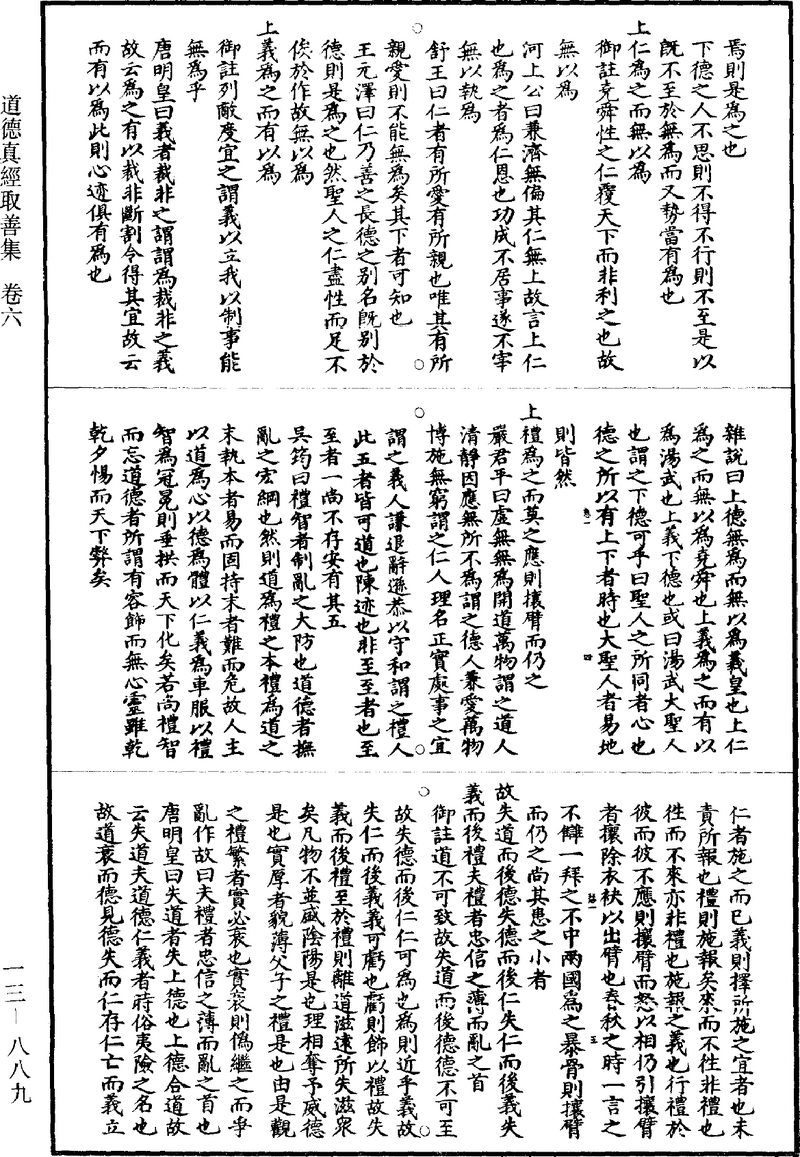 道德真經取善集　卷六
焉則是為之也
下德之人不思則不得不行則不至是以
既不至於無為而又勢當有為也
上仁為之而無以為
御註堯舜性之仁覆天下而非利之也故
無以為
河上公曰兼濟無偏其仁無上故言上仁
也為之者為仁恩也功成不居事遂不宰
無以執為
舒王曰仁者有所愛有所親也唯其有所
親愛則不能無為矣其下者可知也
王元澤曰仁乃善之長德之別名既別於
德則是為之也然聖人之仁盡性而足不
俟於作故無以為
上義為之而有以為
御註列敵度宜之謂義以立我以制事能
無為乎
唐明皇曰義者裁非之謂謂為裁非之義
故云為之有以裁非斷割令得其宜故云
而有以為此則心迹俱有為也
雜說曰上德無為而無以為羲皇也上仁
為之而無以為堯舜也上義為之而有以
為湯武也上義下德也或曰湯武大聖人
也謂之下德可乎曰聖人之所同者心也
德之所以有上下者時也大聖人者易地
則皆然
上禮為之而莫之應則攘臂而仍之
嚴君平曰虛無無為開道萬物謂之道人
清靜因應無所不為謂之德人兼愛萬物
博施無窮謂之仁人理名正實處事之宜
謂之義人謙退辭遜恭以守和謂之禮人
此五者皆可道也陳迹也非至至者也至
至者一尚不存安有其五
吳筠曰禮智者制亂之大防也道德者撫
亂之宏綱也然則道為禮之本禮為道之
末執本者易而固持末者難而危故人主
以道為心以德為體以仁義為車服以禮
智為冠冕則垂拱而天下化矣若尚禮智
而忘道德者所謂有容飾而無心靈雖乾
乾夕惕而天下弊矣
仁者施之而已義則擇所施之宜者也未
責所報也禮則施報矣來而不往非禮也
往而不來亦非禮也施報之義也行禮於
彼而彼不應則攘臂而怒以相仍引攘臂
者攘除衣袂以出臂也春秋之時一言之
不讎一拜之不中兩國為之暴骨則攘臂
而仍之尚其患之小者
故失道而後德失德而後仁失仁而後義失
義而後禮夫禮者忠信之薄而亂之首
御註道不可致故失道而後德德不可至
故失德而後仁仁可為也為則近乎義故
失仁而後義義可虧也虧則飾以禮故失
義而後禮至於禮則離道滋遠所失滋眾
矣凡物不並盛陰陽是也理相奪予威德
是也實厚者貌薄父子之禮是也由是觀
之禮繁者實必衰也實衰則偽繼之而爭
亂作故曰夫禮者忠信之薄而亂之首也
唐明皇曰失道者失上德也上德合道故
云失道夫道德仁義者時俗夷險之名也
故道衰而德見德失而仁存仁亡而義立
一三—八八九